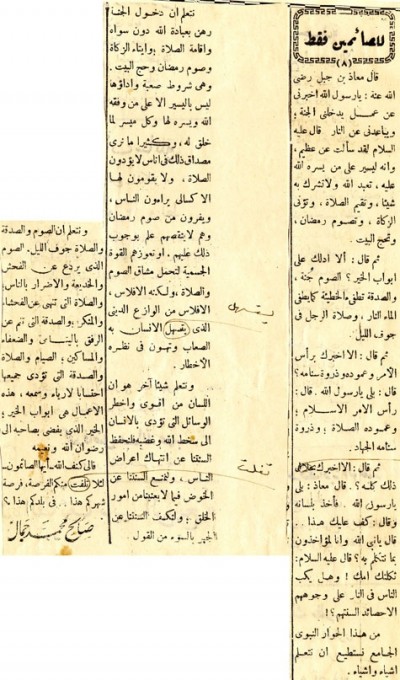 للصائمين فقط
(٨)
قال معاذ بن جبل رضى
الله عنه : يارسول الله اخبرنى
عن عمل يدخلنى الجنة ؛
ويباعدنى عن النار قال عليه
السلام لقد سألت عن عظيم ،
وانه ليسير على من يسره الله
عليه ، تعبد الله ولا تشرك به
شيئا ، وتقيم الصلاة ، وتؤتى
الزكاة ، وتصوم رمضان ،
وتحج البيت .
ثم قال : ألا ادلك على
ابواب الخير ؟ الصوم جُنة ،
والصدقة تطفى الخطيئة كما يطفى
الماء النار ، وصلاة الرجل فى
جوف الليل .
ثم قال : الا اخبرك برأس
الامر وعموده وذروة سنامه ؟
قال : بلى يارسول الله . قال :
رأس الامر الاسلام ؛
وعموده الصلاة ؛ وذروة
سنامه الجهاد .
ثم قال : الا اخبرك
ذلك كله ؟ . قال معاذ : بلى
يارسول الله . فأخذ بلسانه
وقال : كف عليك هذا . .
قال يانبى الله وانا لمؤاخذون
بما نتكلم به ؟ قال عليه السلام :
ثكلتك امك ! وهل يكب
الناس فى النار على وجوههم
الا حصائد السنتهم ؟!
من هذا الحوار النبوى
الجامع نستطيع ان نتعلم
اشياء واشياء .
نتعلم ان دخول الجنة
رهن بعبادة الله دون سواه
واقامة الصلاة ؛ وايتاء الزكاة
وصوم رمضان وحج البيت .
وهى شروط صعبة واداؤها
ليس باليسير الا على من وفقه
الله ويسره لها وكل ميسر لما
خلق له ، وكثيرا ما نرى
مصداق ذلك فى اناس لا يؤدون
الصلاة ، ولا يقومون لها
الا كسالى يراءون الناس ،
ويفرون من صوم رمضان
وهم لا ينقصهم علم بوجوب
ذلك عليهم . او تعوزهم القوة
الجسمية لتحمل مشاق الصوم
والصلاة ، ولكنه الافلاس ،
الافلاس من الوازع الدينى
الذى يتسهل الانسان به
الصعاب وتهون فى نظره
الأخطار .
ونتعلم شيئا آخر هو ان
اللسان من اقوى واخطر
الوسائل التى تؤدى بالانسان
الى سخط الله وغضبه فلنحفظ
السنتنا عن انتهاك اعراض
الناس ، ونمنع السنتنا عن
الخوض فيما لا يعنينا من امور
الخلق ؛ ولنكف السنتنا عن
الجهر بالسوء من القول .
ونتعلم ان الصوم والصدقة
والصلاة جوف الليل . الصوم
الذى يردع عن الفحش
والخديعة والاضرار بالناس ،
والصلاة التى تنهى عن الفحشاء
والمنكر ؛ والصدقة التى تنم عن
الرفق باليتامى والضعفاء
والمساكين ؛ الصيام والصلاة
والصدقة التى تؤدى جميعها
احتسابا لا رياء وسمعة ، هذه
الاعمال هى ابواب الخير ؛
الخير الذى يفضى بصاحبه الى
رضوان الله وجنته .
فالى كنف الله . ايها الصائمون .
لئلا تفلت منكم الفرصة ، فرصة
شهركم هذا . . فى بلدكم هذا ؟ .
صالح محمد جمال
تفلت